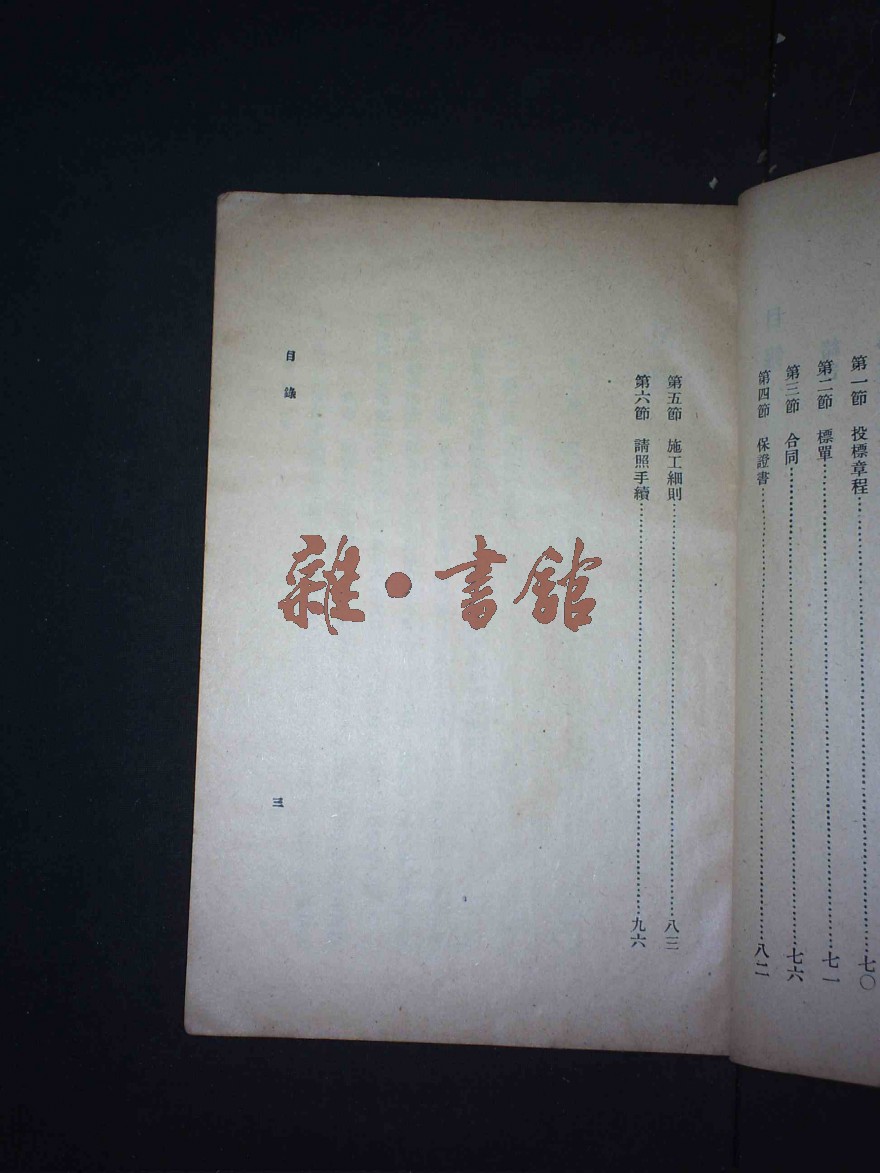 第一節　投標章程……七〇
第二節　標單……七一
第三節　合同……七六
第四節　保證書……八二
第五節　施工細則……八三
第六節　請照手續……九六
目錄
三
雜·書館